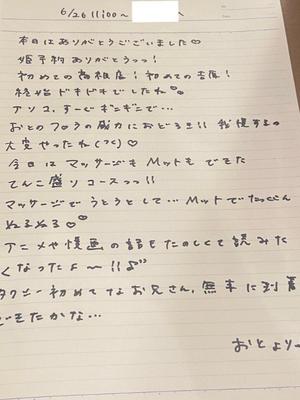 6/26 11:00〜
本日はありがとうございました♡
姫予約ありがとうっっ!
初めての高級店!初めての吉原!
終始ドキドキでしたね
アソコ、すーぐギンギンで…
おとのフェラの威力におどろき!! 我慢するの
大変やったね(><)♡
今日はマッサージもMットもできた
てんこ盛りコースっっ!!
マッサージでうとうとして…Mットでたっぷん
ぬるぬる♡
アニメや漫画の話もたのしくて読みた
くなったよ〜!!♪"
タクシー初めてなお兄さん、無事に到着
できたかな…
おとより